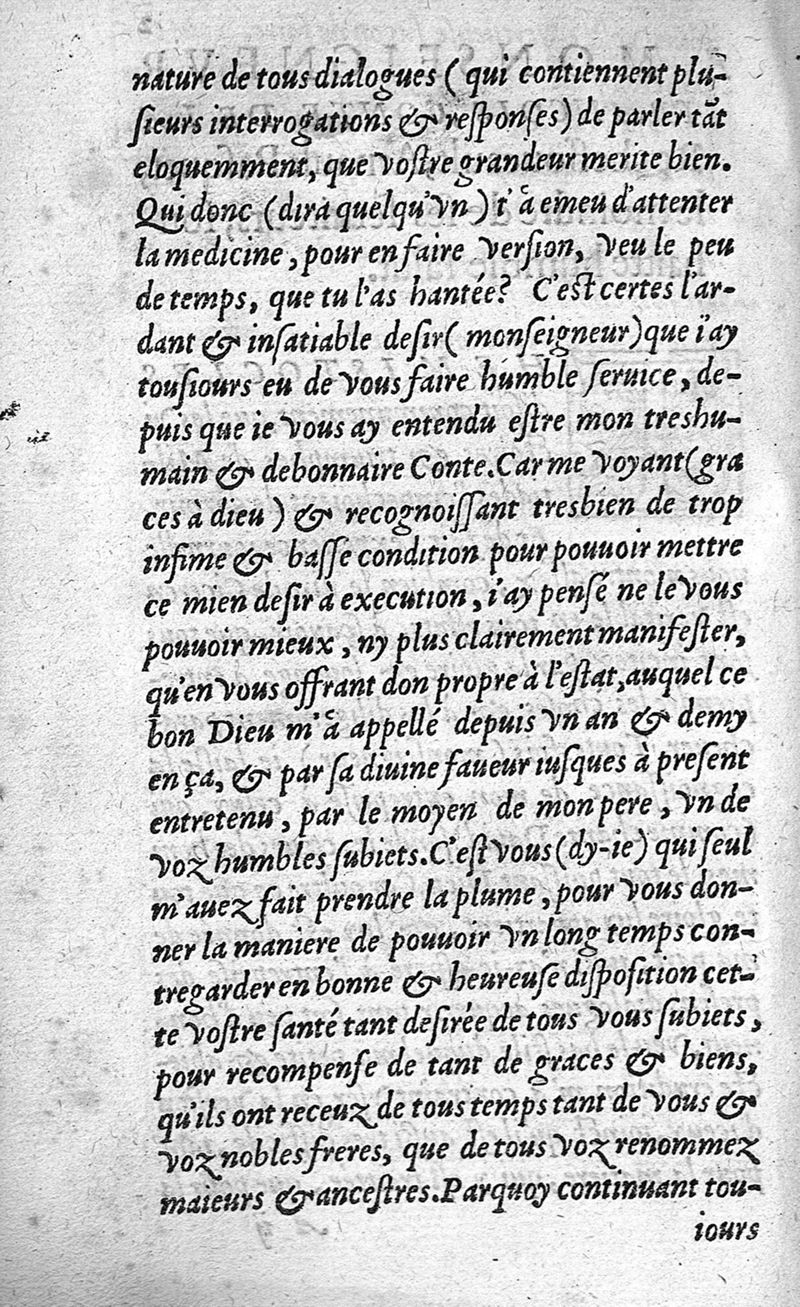 nature de tous dialogues ( qui contiennent plu-
ſieurs interrogations & reſponſes) de parler tãt
eloquemment, que voſtre grandeur merite bien.
Qui donc (dira quelqu'vn ) t'à emeu d'attenter
la medicine, pour en faire verſion, veu le peu
de temps, que tu l'as hantée? C'eſt certes l'ar-
dant & inſatiable deſir( monſeigneur)que i'ay
touſiours eu de vous faire humble ſeruice, de-
puis que ie vous ay entendu eſtre mon treshu-
main & debonnaire Conte.Car me voyant(gra
ces à dieu ) & recognoiſſant tresbien de trop
infime & baſſe condition pour pouuoir mettre
ce mien deſir à execution, i'ay penſé ne le vous
pouuoir mieux, ny plus clairement manifeſter,
qu'en vous offrant don propre à l'eſtat,auquel ce
bon Dieu m'à appellé depuis vn an & demy
en ça, & par ſa diuine faueur iuſques à preſent
entretenu, par le moyen de mon pere, vn de
voz humbles ſubiets.C'eſt vous(dy-ie) qui ſeul
m'auez fait prendre la plume, pour vous don-
ner la maniere de pouuoir vn long temps con-
tregarder en bonne & heureuſe diſpoſition cet-
te voſtre ſanté tant deſirée de tous vous ſubiets,
pour recompenſe de tant de graces & biens,
qu'ils ont receuz de tous temps tant de vous &
voz nobles freres, que de tous voz renommez
maieurs & anceſtres.Parquoy continuant tou-
iours